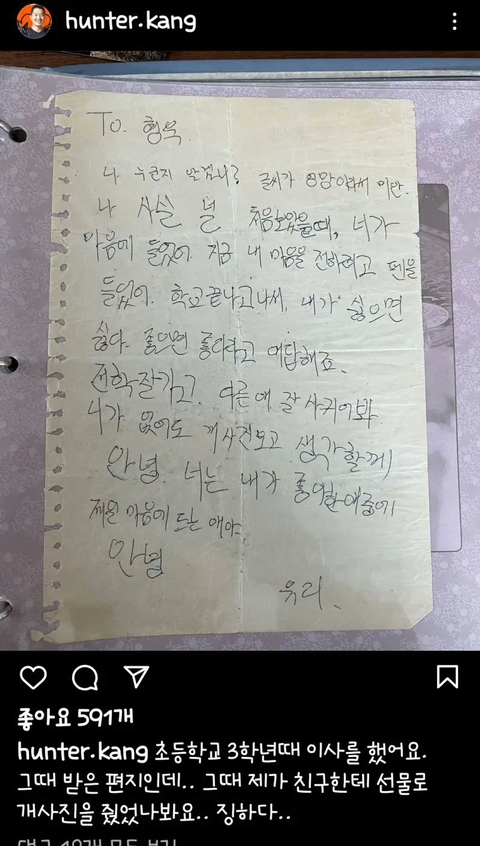 hunter.kang
To. 형욱
나 누군지 알겠니? 글씨가 엉망이라서 미안.
나 사실 널 처음보았을때, 너가
마음에 들었어. 지금 내 마음을 전하려고 펜을
들었어. 학교끝나고나서, 내가 싫으면
싫다. 좋으면 좋다라고 대답해줘.
전학잘가고. 다른애 잘 사귀어봐.
너가 없어도 개사진보고 생각할께
안녕. 너는 내가 좋아한애중에
제일 마음에 드는 애야.
안녕
유리.
좋아요 591개
hunter.kang 초등학교 3학년때 이사를 했어요.
그때 받은 편지인데.. 그때 제가 친구한테 선물로
개사진을 줬었나봐요.. 징하다..